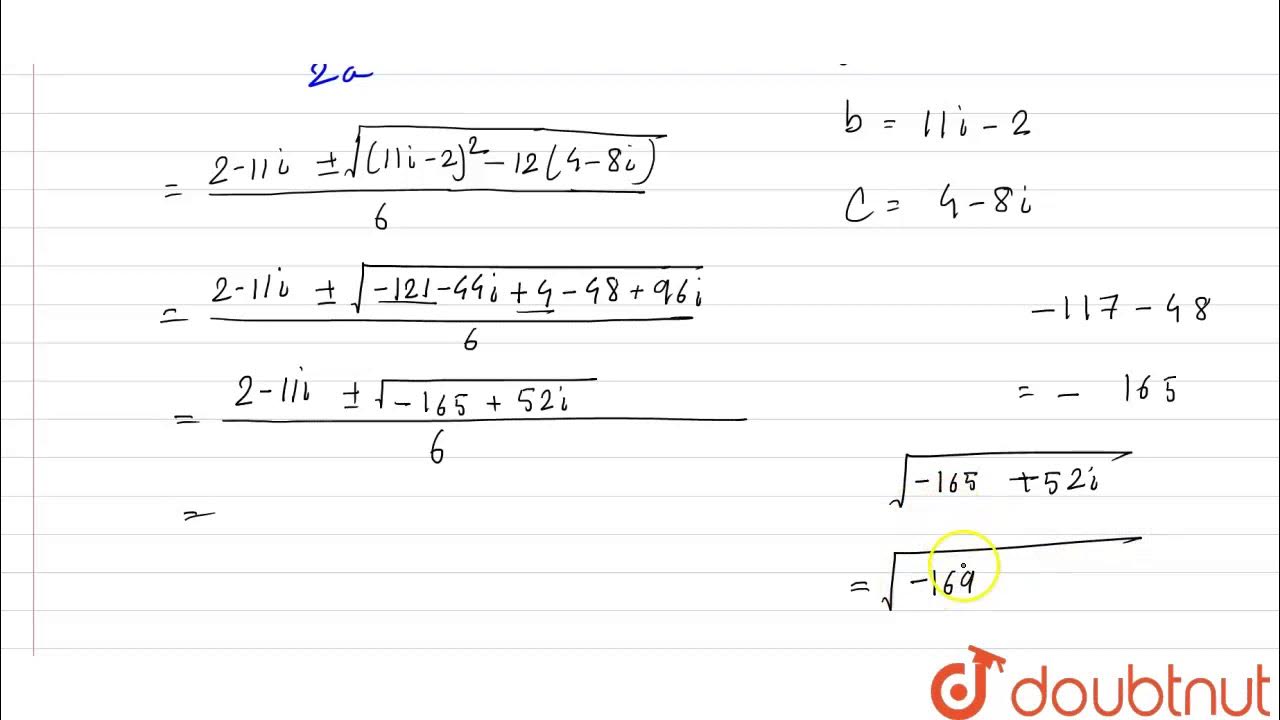 2a
= 2-11i ± √(11i-2)² - 12(4-8i)
6
= 2-11i ± √-121-44i+4-48+96i
6
= 2-11i ± √-165 + 52i
6
=
b = 11i - 2
C = 4-8i
-117-48
= - 165
√-165 +52i
= √-169
doubtnut